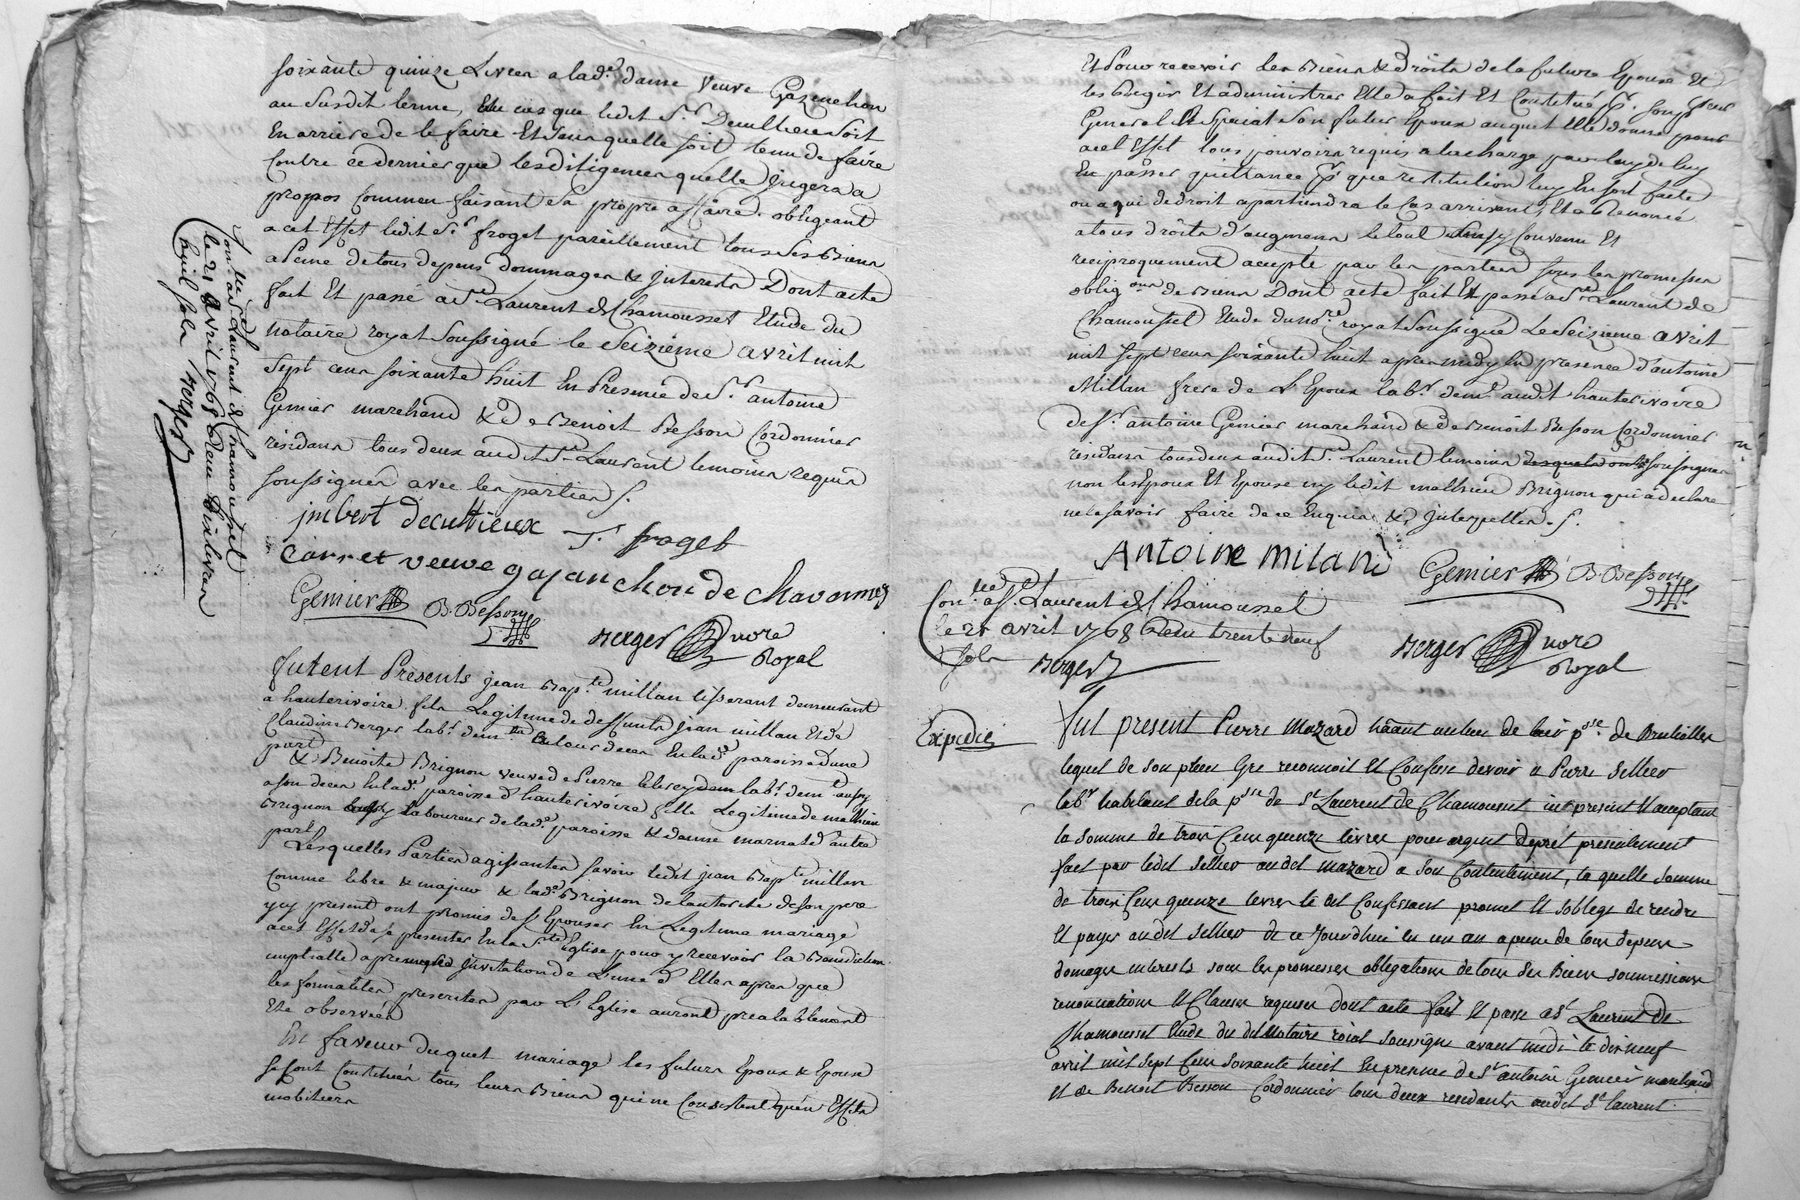 soixante quinze Livres a lad.e dame Veuve Gazenchon
au susdit terme, En cas que ledit S.r Decultieux soit
En arriere de le faire Et sans quelle soit tenu de faire
Contre ce dernier que les diligences quelle jugera a
propos Comme faisant sa propre affaire. obligeant
a cet Effet ledit S.r froget pareillement tous ses Biens
a Peine de tous depens dommages & Interets Dont acte
fait Et passé a S.t Laurent de Chamousset Etude du
notaire royal soussigné le seizième avril mil
sept cens soixante huit En Presence de S.r antoine
Gemier marchand & de Benoit Besson Cordonnier
residans tous deux audit S.t Laurent temoins requis
soussignés avec les parties /.
jmbert decultieux J. froget
Carret veuve gajanchon de Chavannes
Gemier B. Besson
Berger nore
Royal
Con.lé a S.t Laurent de Chamousset
le 21 avril 1768 Reçu
Berger
furent Présents jean Bap.te millan tisserant demeurant
a hauterivoire fils Legitime de deffunts jean millan Et de
Claudine Berger lab.r dem.t En lad.e paroisse d'une
part
& Benoite Brignon veuve de Pierre lab.r dem.t
a son deces En lad.e paroisse d'hauterivoire fille Legitime de mathieu
Brignon Laboureur de lad.e paroisse & d'autre
part
Lesquelles Parties agissantes savoir ledit jean Bap.te millan
Comme libre & majeur & lad.e Brignon de lautorité de son pere
icy présent ont promis de s'Epouser En Légitime mariage
a cet Effet de se presenter En la S.te Eglise pour y recevoir la Benediction
nuptialle a premiere Invitation de L'une d'Elles apres que
les formalités prescrites par L'Eglise auront prealablement
Eté observées
En faveur duquel mariage les futurs Epoux & Epouse
se sont Constitués tous leurs Biens qui ne Consistent qu'en Effets
mobiliers
Et Pour recevoir les Biens & droits de la future Epouse Et
les Regir Et administrer Elle a fait Et Constitué
General & Special son futur Epoux auquel Elle donne pour
acet Effet tous pouvoirs requis a la charge par luy de luy
En passer quittance & que restitution luy En soit faite
ou a qui de droit apartiendra le Cas arrivant Et a Renoncé
a tous droits d'augmens le tout Convenu Et
reciproquement accepté par les parties sous les promesses
oblig.ons de Biens Dont acte fait Et passé a S.t Laurent de
Chamousset Etude du no.re royal soussigné Le seizieme avril
mil sept cens soixante huit apres midy En presence d'antoine
Millan frere de L'Epoux lab.r dem.t audit hauterivoire
de S.r antoine Gemier marchand & de Benoit Besson Cordonnier
residans tous deux audit S.t Laurent temoins soussignés
non les Epoux Et Epouse ny ledit mathieu Brignon qui a declaré
ne le savoir faire de ce Enquis & Interpellés /.
Antoine milani Gemier B. Besson
Con.lé a S.t Laurent de Chamousset
le 21 avril 1768 Reçu trente neuf
sols Berger
Berger nore
Royal
Expedié
fut present Pierre Mazard
lequel de son plein Gre reconnoit Et Confesse devoir a Pierre Sellier
lab.r habitant de la p.sse de S.t Laurent de Chamousset icy present Et acceptant
la somme de trois Cens quinze livres pour argent de pret presentement
fait par ledit sellier audit mazard a son Contentement, la quelle somme
de trois Cens quinze livres le dit Confessant promet Et soblige de rendre
Et payer audit sellier de ce Jourdhui En un an a peine de tous depens
domages interests sous les promesses obligations de tous ses Biens soumissions
renonciations Et Clauses requises dont acte fait Et passé a S.t Laurent de
Chamousset Etude du dit Notaire roial soussigné avant midi le dix neuf
avril mil sept Cens soixante huit En presence de S.r antoine Gemier marchand
Et de Benoit Besson Cordonnier tous deux residants audit S.t Laurent.